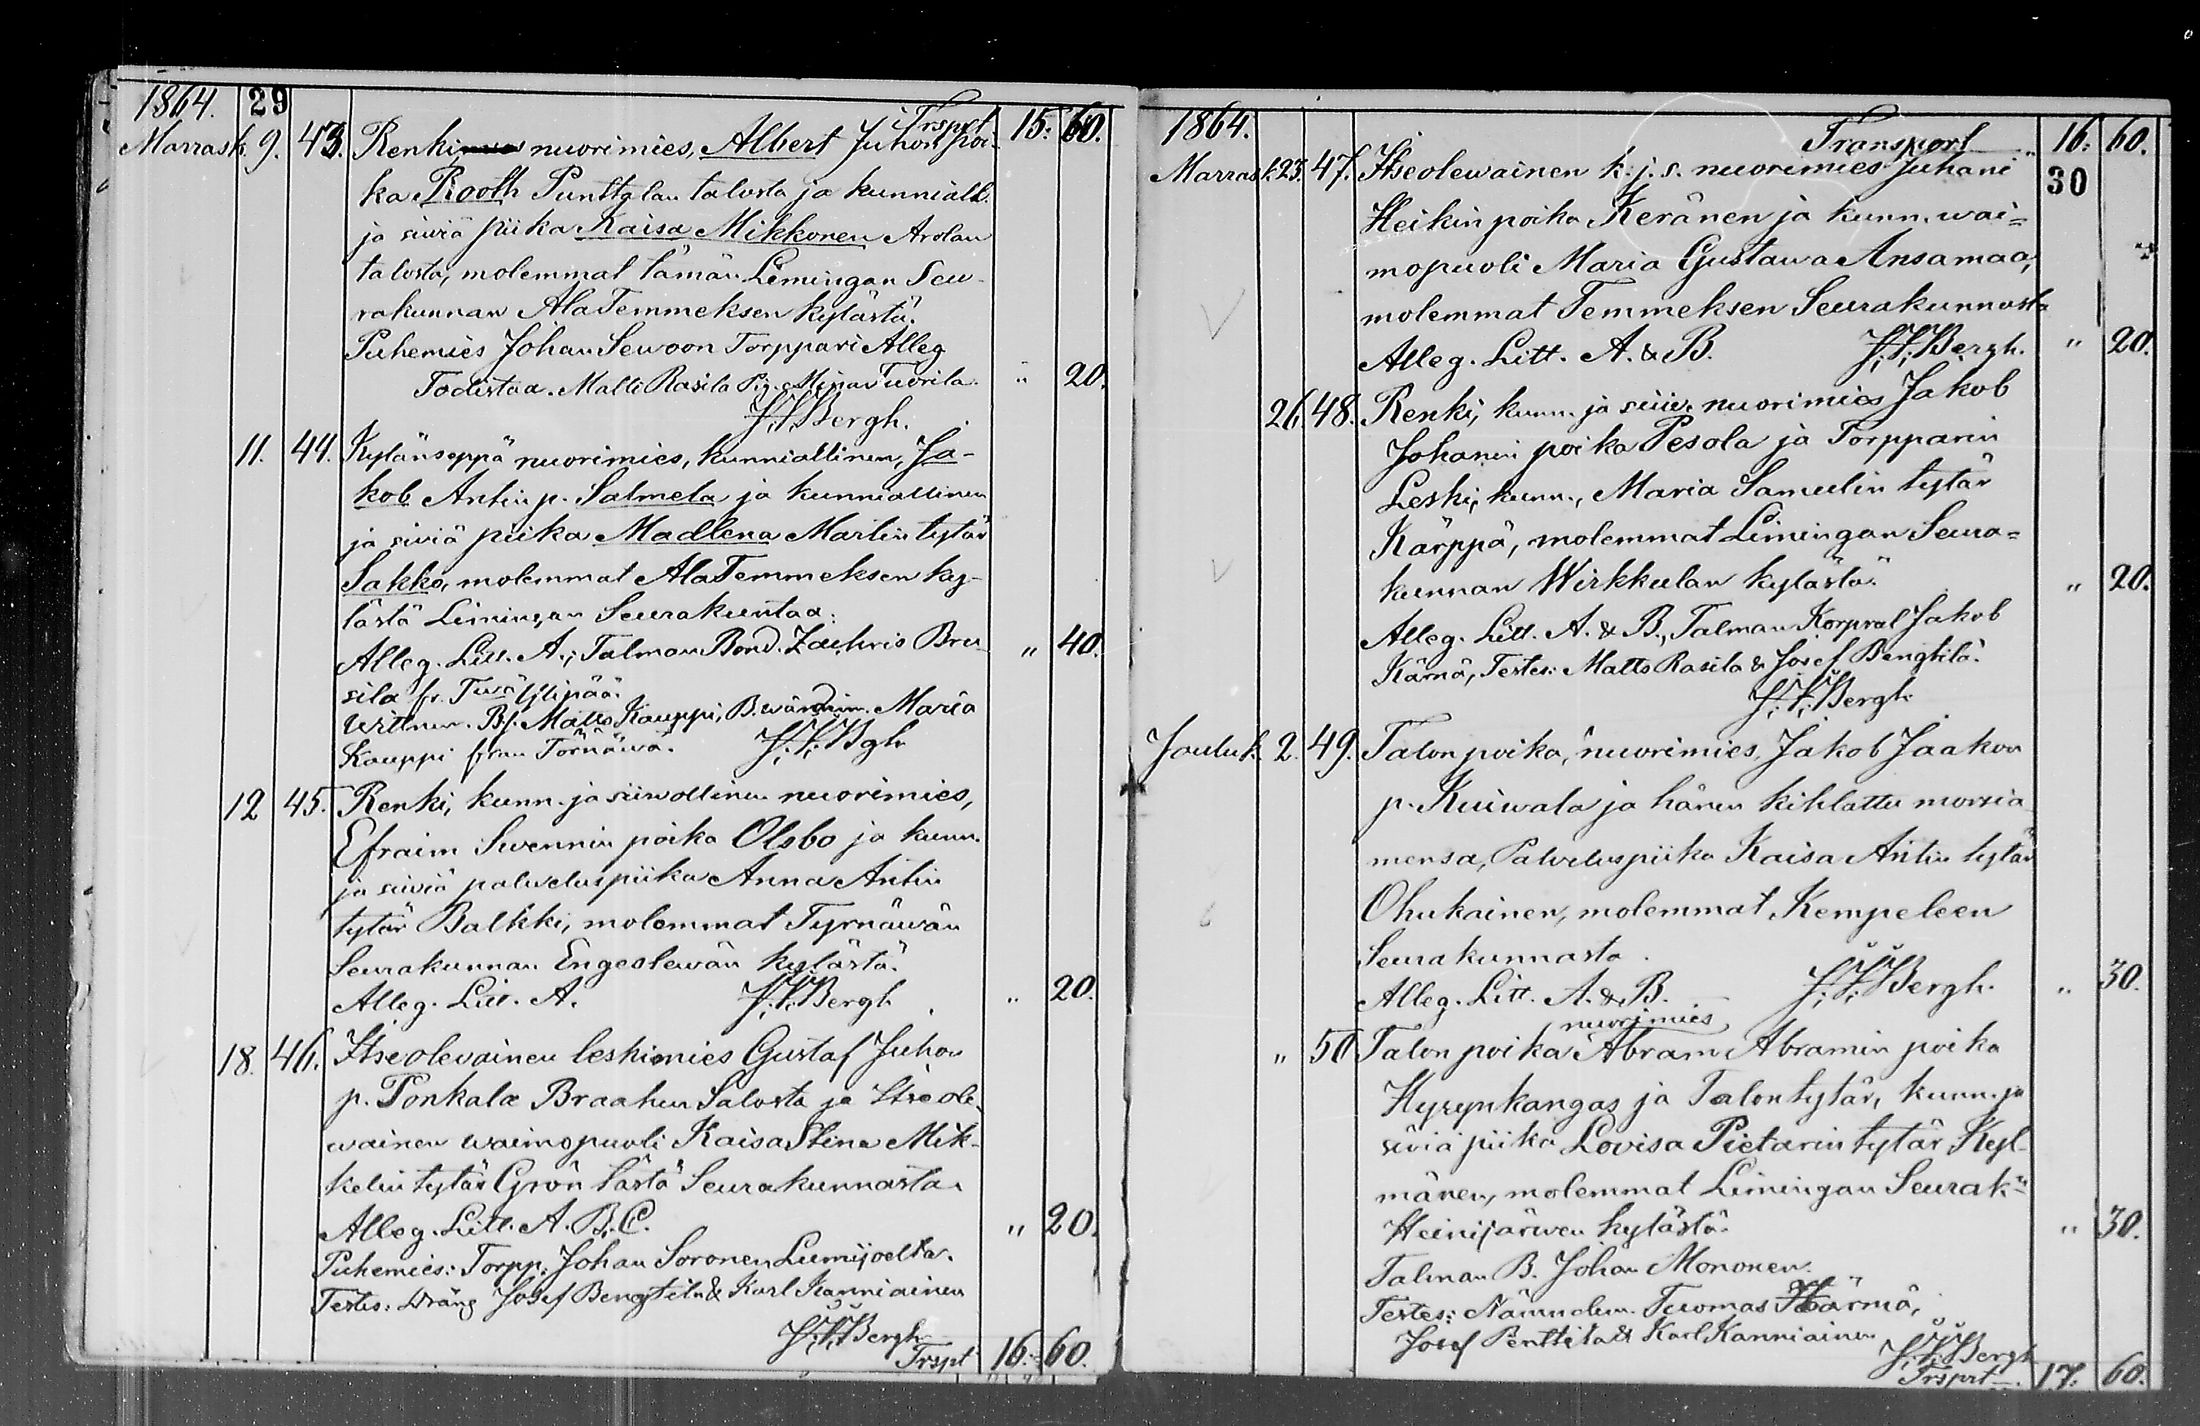 1864. 29
Trsprt 15: 60.
Marrask. 9. 43. Renki nuorimies, Albert Juhon poi-
ka Rooth Punttalan talosta ja kunniall.
ja siviä piika Kaisa Mikkonen Arolan
talosta, molemmat tämän Limingan Seu-
rakunnan AlaTemmeksen kylästä.
Puhemies Johan Sewoon Torppari Alleg
Todistaa. Matti Rasila Pig. Mina Tuorila. " 20.
J. F. Bergh.
11. 44. Kylänseppä nuorimies, kunniallinen, Ja-
kob Antin p. Salmela ja kunniallinen
ja siviä piika Madlena Martin tytär
Sakko, molemmat AlaTemmeksen ky-
lästä Limingan Seurakuntaa.
Alleg. Litt. A.; Talman Bond. Zachris Bru- " 40.
sila fr.
Wittnen. Bf. Matts Kauppi, B. Maria
Kauppi från Törnäwä. J. F. Bgh
12 45. Renki, kunn. ja siiwollinen nuorimies,
Efraim Swennin poika Olsbo ja kunn.
ja siviä palveluspiika Anna Antin
tytär Balkki, molemmat Tyrnäwän
Seurakunnan Engeslewän kylästä.
Alleg. Litt. A. J. F. Bergh. " 20.
18. 46. Itseolevainen leskimies Gustaf Juhon
p. Ponkala Braahen Salosta ja Itseole-
wainen waimopuoli Kaisa Stina Mik-
kelin tytär Grön tästä Seurakunnasta.
Alleg. Litt. A. B. C. " 20.
Puhemies: Torpp. Johan Soronen Lumijoelta.
Testes: Dräng Josef Bengtilä & Karl Kanniainen
J. F. Bergh
Trspt 16: 60.
1864.
Transport 16: 60.
30
Marrask. 23. 47. Itseolewainen k. j. s. nuorimies Juhani
Heikin poika Keränen ja kunn. wai=
mopuoli Maria Gustawa Ansamaa,
molemmat Temmeksen Seurakunnasta
Alleg. Litt. A. & B. J. F. Bergh. " 20.
26. 48. Renki, kunn. ja siiw. nuorimies Jakob
Johanin poika Pesola ja Torpparin
Leski, kunn., Maria Samulin tytär
Kärppä, molemmat Limingan Seura=
kunnan Wirkkulan kylästä. " 20.
Alleg. Litt. A. & B., Talman Korpral Jakob
Kärnä, Testes: Matts Rasila & Josef Bengtilä.
J. F. Bergh.
Jouluk. 2. 49. Talon poika, nuorimies, Jakob Jaakon
p. Kuiwala ja hänen kihlattu morsia
mensa, Palveluspiika Kaisa Antin tytär
Ohukainen, molemmat Kempeleen
Seurakunnasta.
Alleg. Litt. A. & B. J. F. Bergh. " 30.
nuorimies
" 50 Talon poika Abram Abramin poika
Hyrynkangas ja Talon tytär, kunn. ja
siviä piika Lovisa Pietarin tytär Kyl-
mänen, molemmat Limingan Seurak:n
Heinijärwen kylästä. " 30.
Talman B. Johan Mononen.
Testes: Nämndem. Tuomas Härmä,
Josef Penttilä & Karl Kanniainen
J. F. Bergh
Trsprt 17: 60.